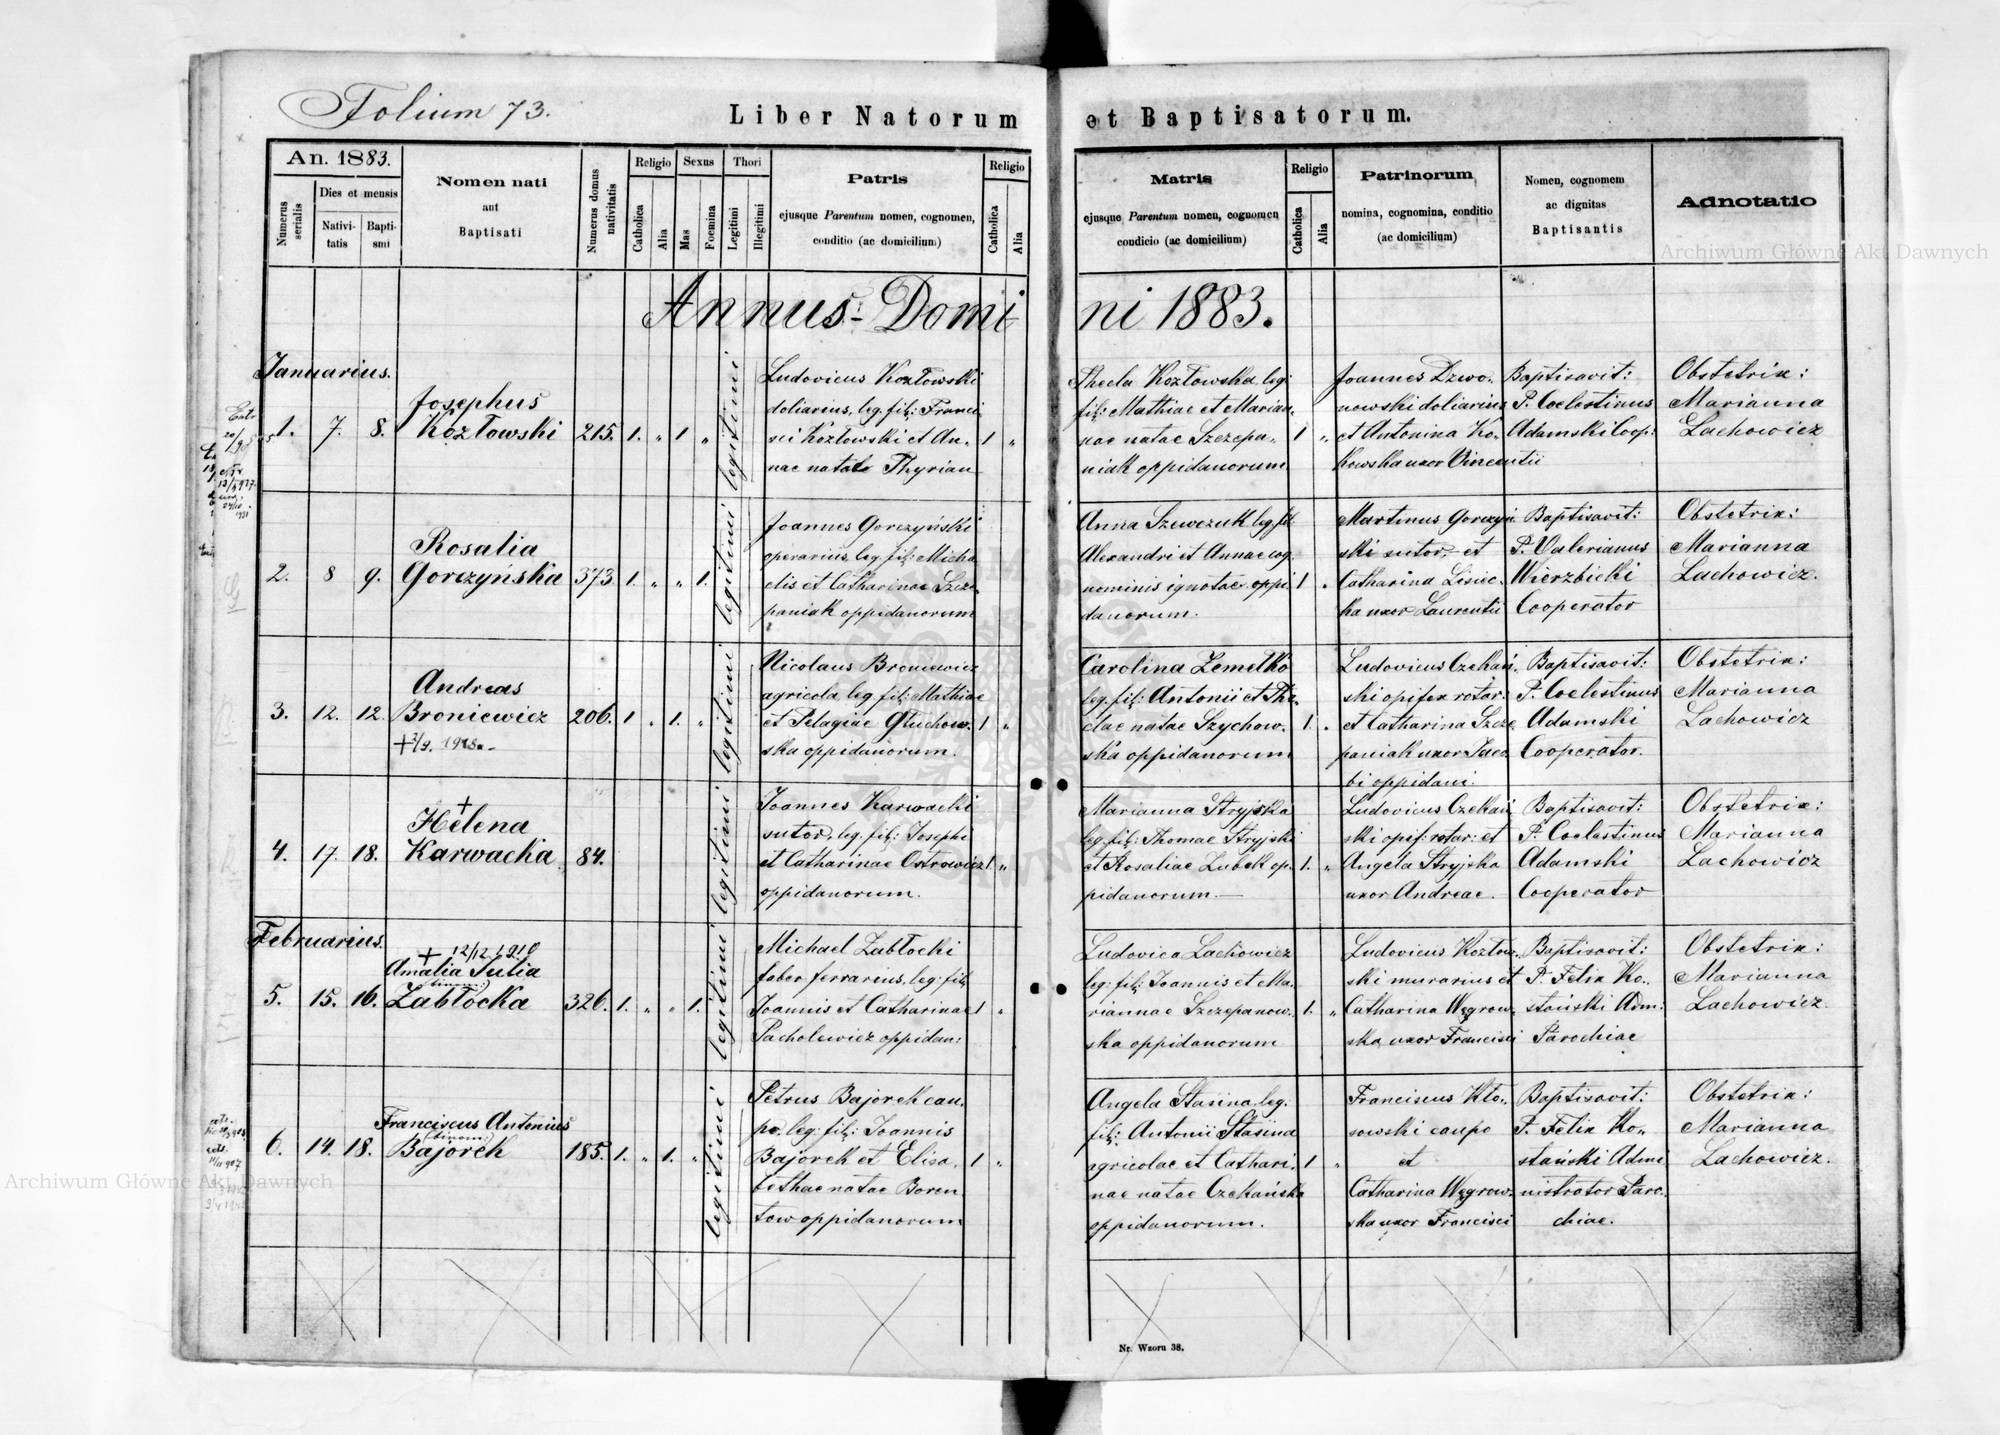 Folium 73.
Liber Natorum et Baptisatorum.
An. 1883.
Numerus serialis
Dies et mensis
Nativi-
tatis
Bapti-
smi
Nomen nati
ant
Baptisati
Numerus domus nativitatis
Religio
Catholica
Alia
Sexus
Mas
Foemina
Thori
Legitimi
Illegitimi
Patris
ejusque Parentum nomen, cognomen,
conditio (ac domicilium)
Religio
Catholica
Alia
Matris
ejusque Parentum nomen, cognomen
condicio (ac domicilium)
Religio
Catholica
Alia
Patrinorum
nomina, cognomina, conditio
(ac domicilium)
Nomen, cognomem
ac dignitas
Baptisantis
Adnotatio
Archiwum Główne Akt Dawnych
Annus Domini 1883.
Januarius.
1. 7. 8.
Josephus
Kozłowski
215. 1. " 1 "
legitimi
Ludovicus Kozłowski
doliarius, leg. fil: Franci
sci Kozłowski et An-
nae natae Thyrian
1 "
Thecla Kozłowska leg:
fil: Mathiae et Marian-
nae natae Szczepa-
niak oppidanorum
1 "
Joannes Dzwo-
nowski doliarius
et Antonina Ko-
kowska uxor Vincentii
Baptisavit:
P. Coelestinus
Adamski Coop:
Obstetrix:
Marianna
Lachowicz
2. 8 9.
Rosalia
Gorczyńska
373. 1. " " 1.
legitimi
Joannes Gorczyński
operarius, leg fil: Micha
elis et Catharinae Szcze-
paniak oppidanorum
Anna Szewczuk leg fil:
Alexandri et Annae cog
nominis ignotae oppi
danorum.
1 "
Martinus Gorczyń
ski sutor, et
Catharina Lisiec-
ka uxor Laurentii
Baptisavit:
P. Valerianus
Wierzbicki
Cooperator
Obstetrix:
Marianna
Lachowicz.
3. 12. 12.
Andreas
Broniewicz
206. 1 " 1. "
legitimi
Nicolaus Broniewicz
agricola leg fil: Mathiae
et Pelagiae Głuchow-
ska oppidanorum.
1 "
Carolina Zemełko
leg. fil: Antonii et The-
clae natae Szychow-
ska oppidanorum
1. "
Ludovicus Czekań-
ski opifex rotar:
et Catharina Szcze
paniak uxor Jaco
bi oppidani.
Baptisavit:
P. Coelestinus
Adamski
Cooperator.
Obstetrix:
Marianna
Lachowicz
4. 17. 18.
+
Helena
Karwacka
84.
legitimi
Joannes Karwacki
sutor, leg. fil: Josephi
et Catharinae Ostrowicz
oppidanorum.
1. "
Marianna Stryjska
leg. fil: Thomae Stryjski
et Rosaliae Lubek op-
pidanorum.
1. "
Ludovicus Czekań
ski opif: rotar: et
Angela Stryjska
uxor Andreae.
Baptisavit:
P. Coelestinus
Adamski
Cooperator
Obstetrix:
Marianna
Lachowicz
Februarius.
5. 15. 16.
+ 12/12 1910
Amalia Julia
(binom:)
Zabłocka
326. 1. " " 1.
legitimi
Michael Zabłocki
faber ferrarius, leg: fil:
Joannis et Catharinae
Pacholewicz oppidan:
1 "
Ludovica Lachowicz
leg: fil: Joannis et Ma-
riannae Szczepanow-
ska oppidanorum
1. "
Ludovicus Kozłow-
ski murarius et
Catharina Węgrow-
ska uxor Francisci
Baptisavit:
P. Felix Ko-
stański Adm:
Parochiae
Obstetrix:
Marianna
Lachowicz.
6. 14. 18.
Franciscus Antonius
(binom:)
Bajorek
185. 1. " 1. "
legitimi
Petrus Bajorek cau-
po, leg: fil: Joannis
Bajorek et Elisa-
bethae natae Boren
tow oppidanorum
1 "
Angela Stasina leg:
fil: Antonii Stasina
agricolae et Cathari-
nae natae Czekańska
oppidanorum.
1 "
Franciscus Kło-
sowski caupo
et
Catharina Węgrow-
ska uxor Francisci
Baptisavit:
P. Felix Ko-
stański Admi
nistrator Paro-
chiae.
Obstetrix:
Marianna
Lachowicz.
Archiwum Główne Akt Dawnych
Nr. Wzoru 38.